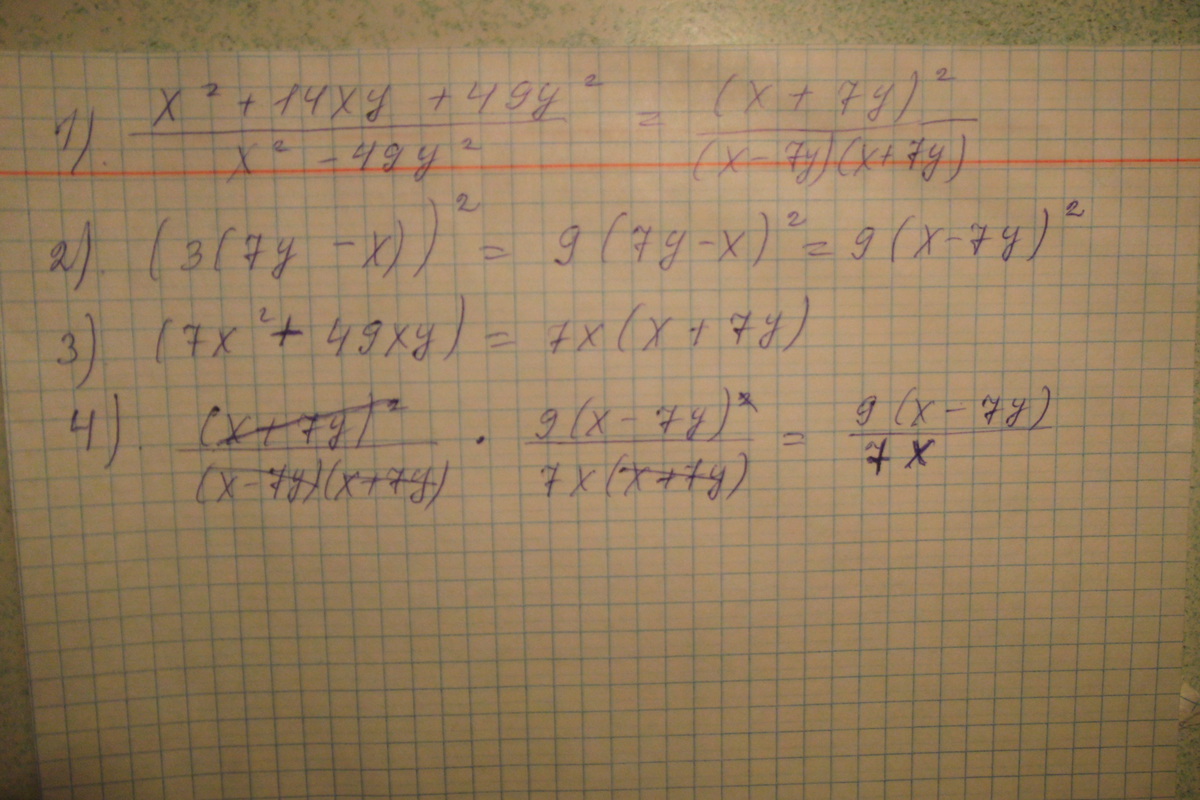 1). (x² + 14xy + 49y²)/(x² - 49y²) = (x + 7y)²/((x - 7y)(x + 7y))
2). (3(7y - x))² = 9(7y - x)² = 9(x - 7y)²
3) (7x² + 49xy) = 7x(x + 7y)
4). (x + 7y)²/((x - 7y)(x + 7y)) · 9(x - 7y)²/(7x(x + 7y)) = 9(x - 7y)/(7x)